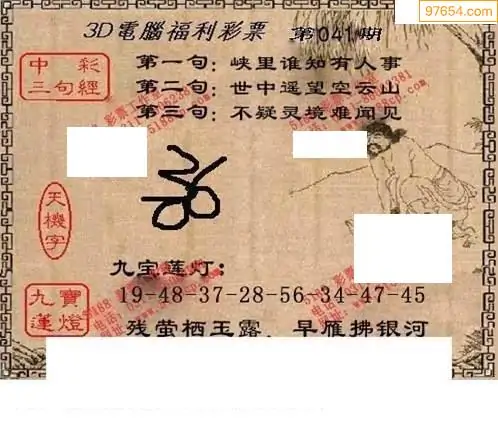 97654.com
3D電腦福利彩票 第041期
中彩
三句經
第一句：峡里谁知有人事
第二句：世中遥望空云山
第三句：不疑灵境难闻见
天機字
九宝莲灯：
19-48-37-28-56-34-47-45
九寶
蓮燈
残萤栖玉露、早雁拂银河